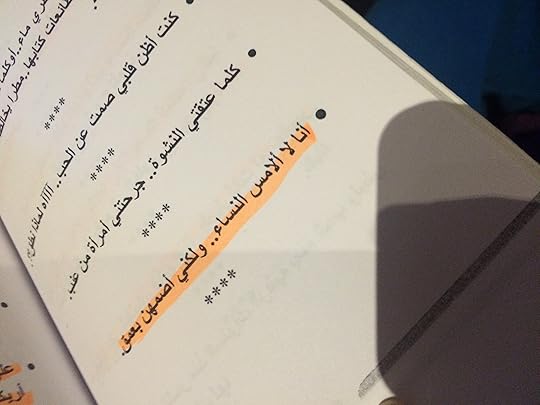 ري ماء..أوكلما
طائعات كتابها..مطرا يخالط
****
كنت أظن قلبي صمت عن الحب..
****
كلما عتقتني النشوة.. جرحتني امرأة من غب.
****
أنا لا ألامس النساء.. ولكني أضمهن بعمق.
****